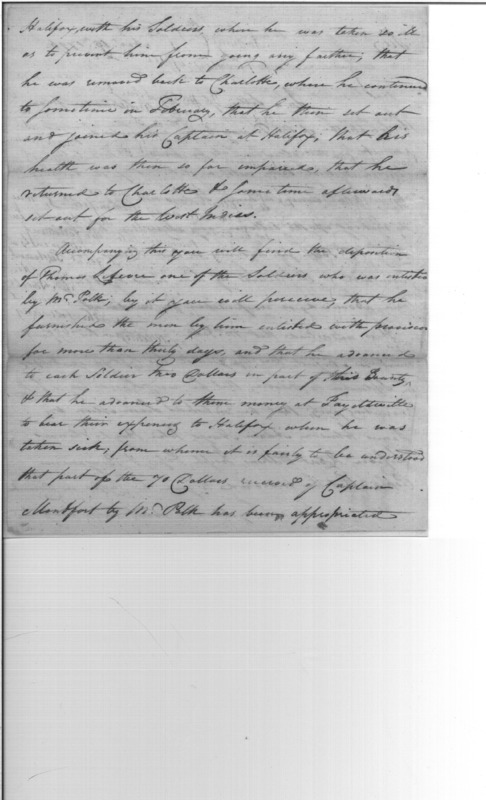 Halifax, with his Soldiers, where he was taken so ill
as to prevent him from going any farther, that
he was removed back to Charlotte, where he continued
to sometime in February, that he then set out
and joined his Captain at Halifax, that his
health was then so far impaired, that he
returned to Charlotte & some time afterwards
set out for the West Indies.
Accompanying this you will find the deposition
of Thomas one of the Soldiers who was enlisted
by Mr. Polk, by it you will perceive, that he
furnished the men by him enlisted with provision
for more than thirty days, and that he advanced
to each Soldier two Dollars in part of Bounty,
& that he advanced to them money at Fayetteville
to bear their expenses to Halifax when he was
taken sick, from whence it is fairly to be understood
that part of the 70 Dollars received of Captain
Montfort by Mr. Polk has been appropriated